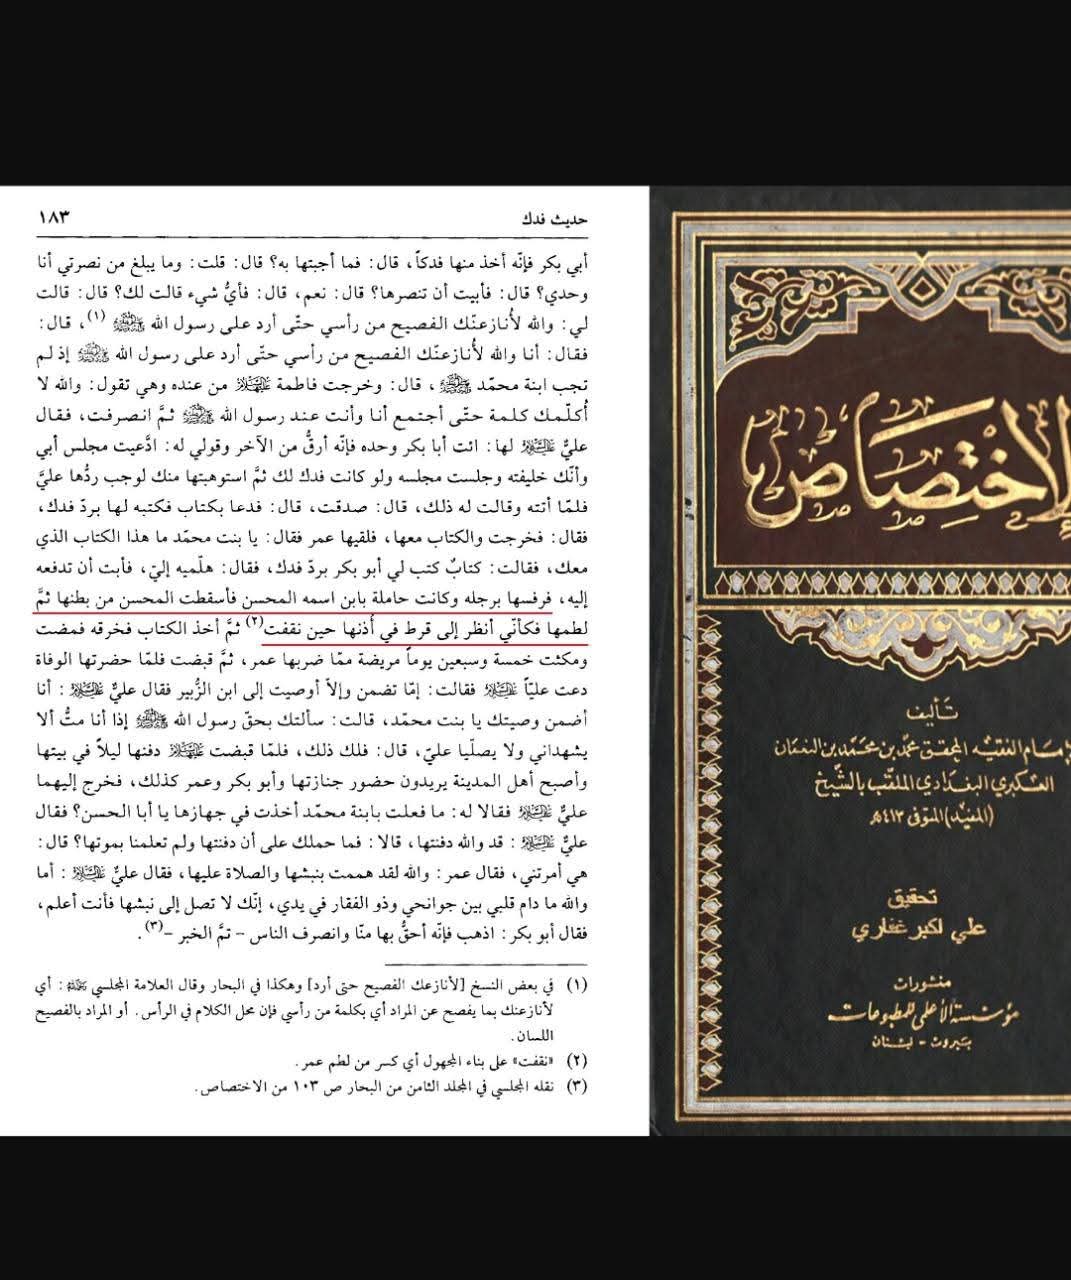 حديث فدك ١٨٣
أبي بكر فإنّه أخذ منها فدكاً، قال: فما أجبتها به؟ قال: قلت: وما يبلغ من نصرتي أنا
وحدي؟ قال: فأبيت أن تنصرها؟ قال: نعم، قال: فأيُّ شيء قالت لك؟ قال: قالت
لي: والله لأُنازعنّك الفصيح من رأسي حتّى أرد على رسول الله ﷺ (١)، قال:
فقال: أنا والله لأُنازعنّك الفصيح من رأسي حتّى أرد على رسول الله ﷺ إذ لم
تجب ابنة محمّد ﷺ، قال: وخرجت فاطمة عليها السلام من عنده وهي تقول: والله لا
أُكلّمك كلمة حتّى أجتمع أنا وأنت عند رسول الله ﷺ ثمَّ انصرفت، فقال
عليٌّ عليه السلام لها: ائت أبا بكر وحده فإنّه أرقُّ من الآخر وقولي له: ادَّعيت مجلس أبي
وأنّك خليفته وجلست مجلسه ولو كانت فدك لك ثمَّ استوهبتها منك لوجب ردُّها عليَّ
فلمّا أتته وقالت له ذلك، قال: صدقت، قال: فدعا بكتاب فكتبه لها بردّ فدك،
فقال: فخرجت والكتاب معها، فلقيها عمر فقال: يا بنت محمّد ما هذا الكتاب الذي
معك، فقالت: كتابٌ كتب لي أبو بكر بردّ فدك، فقال: هلّميه إليّ، فأبت أن تدفعه
إليه، فرفسها برجله وكانت حاملة بابن اسمه المحسن فأسقطت المحسن من بطنها ثمَّ
لطمها فكأنّي أنظر إلى قرط في أُذنها حين نقفت(٢) ثمَّ أخذ الكتاب فخرقه فمضت
ومكثت خمسة وسبعين يوماً مريضة ممّا ضربها عمر، ثمَّ قبضت فلمّا حضرتها الوفاة
دعت عليّاً عليه السلام فقالت: إمّا تضمن وإلاّ أوصيت إلى ابن الزُّبير فقال عليٌّ عليه السلام: أنا
أضمن وصيتك يا بنت محمّد، قالت: سألتك بحقّ رسول الله ﷺ إذا أنا متُّ ألا
يشهداني ولا يصلّيا عليّ، قال: فلك ذلك، فلمّا قبضت عليها السلام دفنها ليلاً في بيتها
وأصبح أهل المدينة يريدون حضور جنازتها وأبو بكر وعمر كذلك، فخرج إليهما
عليٌّ عليه السلام فقالا له: ما فعلت بابنة محمّد أخذت في جهازها يا أبا الحسن؟ فقال
عليٌّ عليه السلام: قد والله دفنتها، قالا: فما حملك على أن دفنتها ولم تعلمنا بموتها؟ قال:
هي أمرتني، فقال عمر: والله لقد هممت بنبشها والصلاة عليها، فقال عليٌّ عليه السلام: أما
والله ما دام قلبي بين جوانحي وذو الفقار في يدي، إنّك لا تصل إلى نبشها فأنت أعلم،
فقال أبو بكر: اذهب فإنّه أحقُّ بها منّا وانصرف الناس – تمَّ الخبر –(٣).
(١) في بعض النسخ [لأنازعك الفصيح حتى أرد] وهكذا في البحار وقال العلامة المجلسي: أي
لأنازعنك بما يفصح عن المراد أي بكلمة من رأسي فإن محل الكلام في الرأس. أو المراد بالفصيح
اللسان.
(٢) «نقفت» على بناء المجهول أي كسر من لطم عمر.
(٣) نقله المجلسي في المجلد الثامن من البحار ص ١٠٣ من الاختصاص.
الإختصاص
تأليف
الإمام الفقيه المحقق محمّد بن محمّد بن النعمان
العكبري البغدادي الملقب بالشيخ
(المفيد) المتوفى ٤١٣هـ
تحقيق
علي أكبر غفاري
منشورات
مؤسسة الأعلمي للمطبوعات
بيروت - لبنان